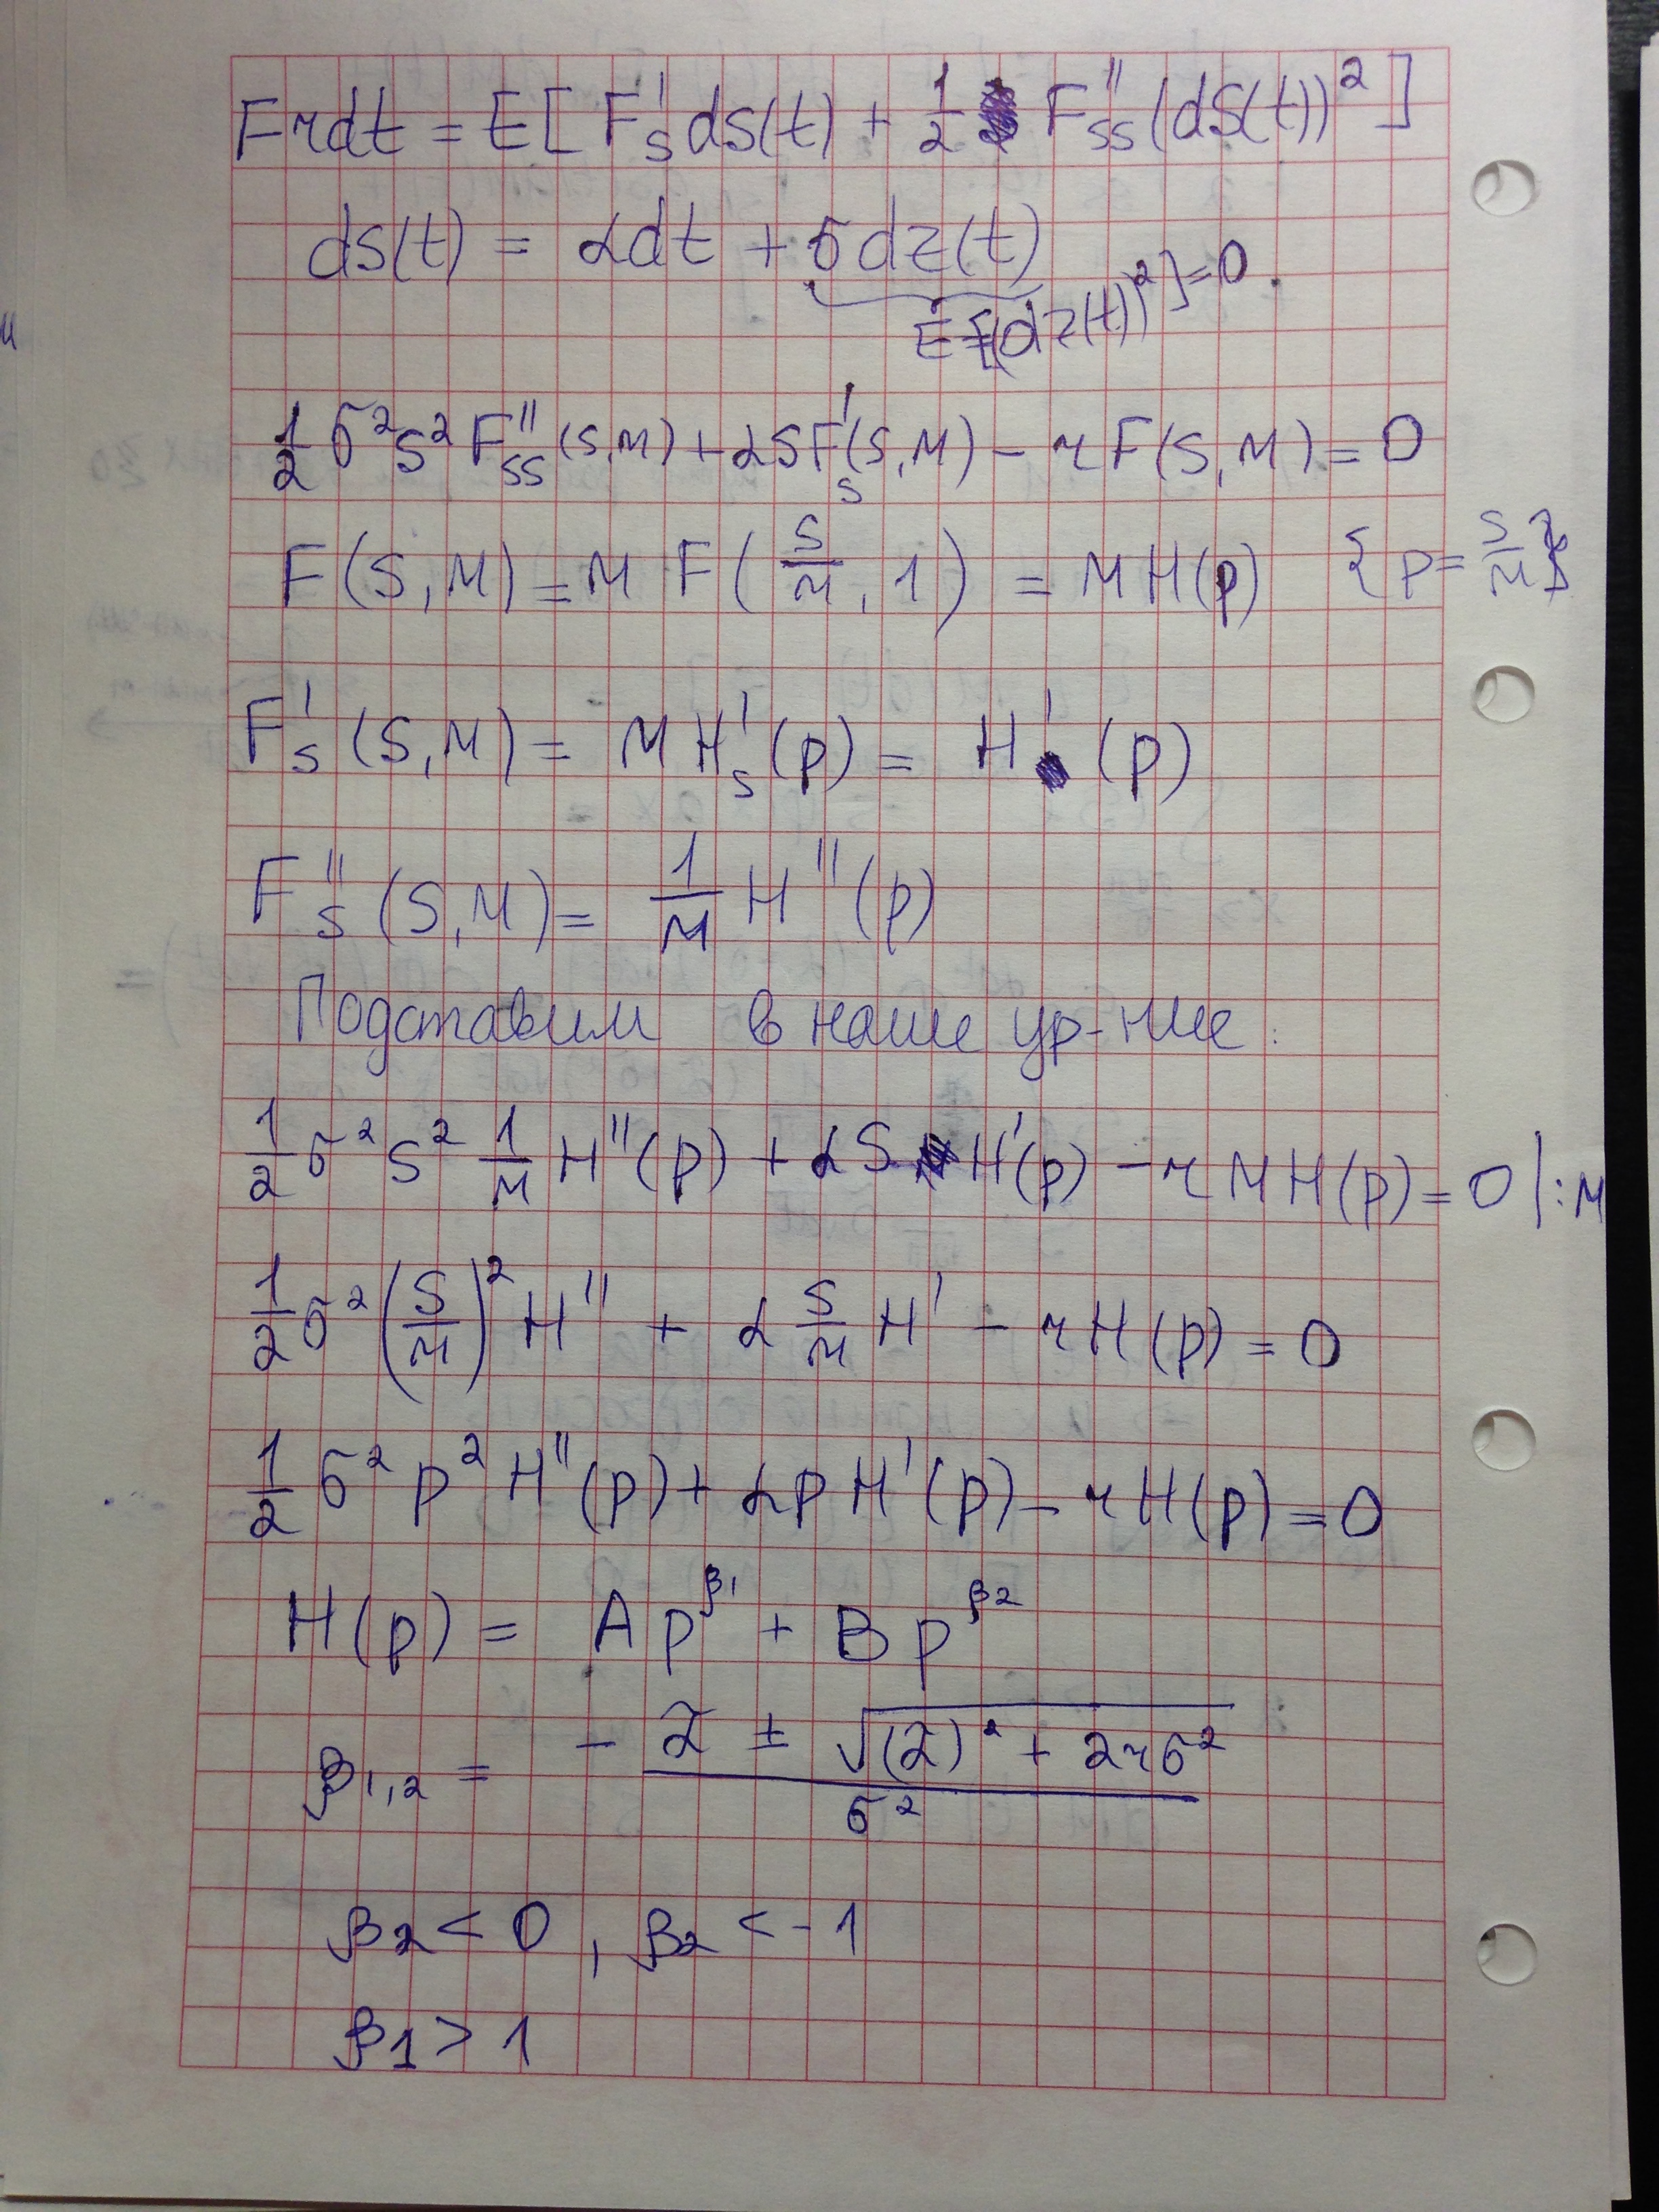 Frdt = E[F'_S ds(t) + 1/2 F''_SS (dS(t))²]
ds(t) = αdt + σdz(t)
E[(dz(t))²] = 0.
1/2 σ²S² F''_SS (S,M) + αSF'_S(S,M) - rF(S,M) = 0
F(S,M) = M F(S/M, 1) = MH(p) {p = S/M}
F'_S (S,M) = MH'_S(p) = H'(p)
F''_S (S,M) = 1/M H''(p)
Подставим в наше ур-ние:
1/2 σ²S² 1/M H''(p) + αS H'(p) - rMH(p) = 0 |:M
1/2 σ² (S/M)² H'' + α S/M H' - rH(p) = 0
1/2 σ² p² H''(p) + αpH'(p) - rH(p) = 0
H(p) = Ap^β1 + Bp^β2
β1,2 = - 2 ± √((2)² + 2rσ²) / σ²
β2 < 0, β2 < -1
β1 > 1